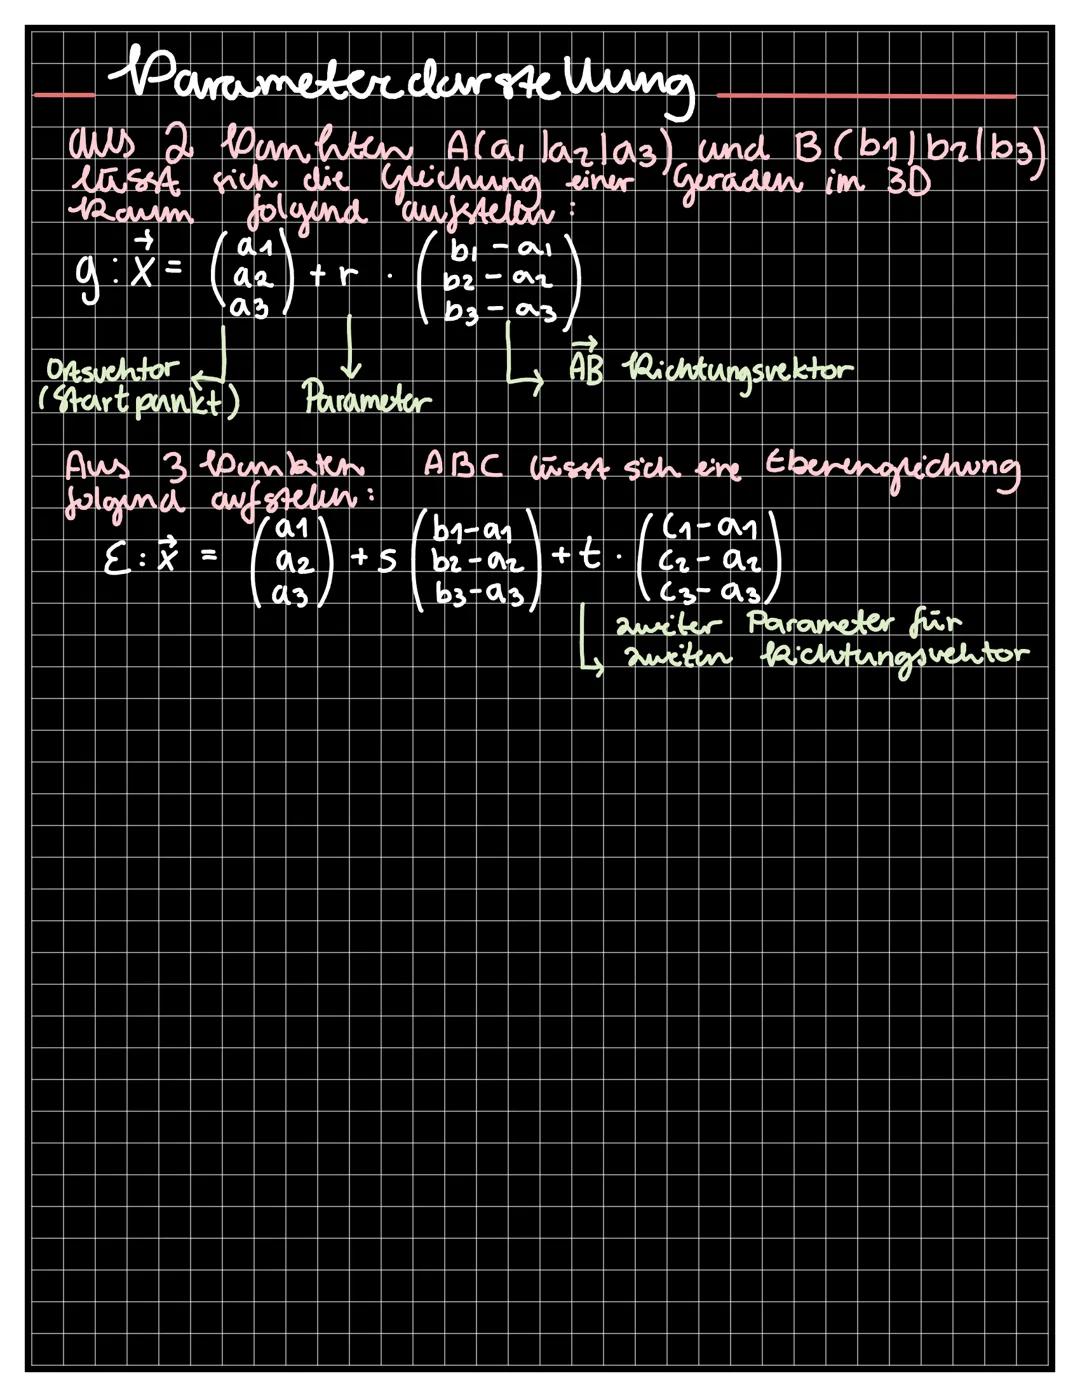 Parameterdarstellung
Aus 2 Punkten A(a1|a2|a3) und B(b1|b2|b3)
lässt sich die Gleichung einer Geraden im 3D
Raum folgend aufstellen:
g: x⃗ = (a1 a2 a3) + r · (b1 - a1 b2 - a2 b3 - a3)
Ortsvektor
(Startpunkt)
Parameter
A⃗B⃗ Richtungsvektor
Aus 3 Punkten ABC lässt sich eine Ebenengleichung
folgend aufstellen:
E: x⃗ = (a1 a2 a3) + s (b1-a1 b2-a2 b3-a3) + t · (c1-a1 c2-a2 c3-a3)
zweiter Parameter für
zweiten Richtungsvektor